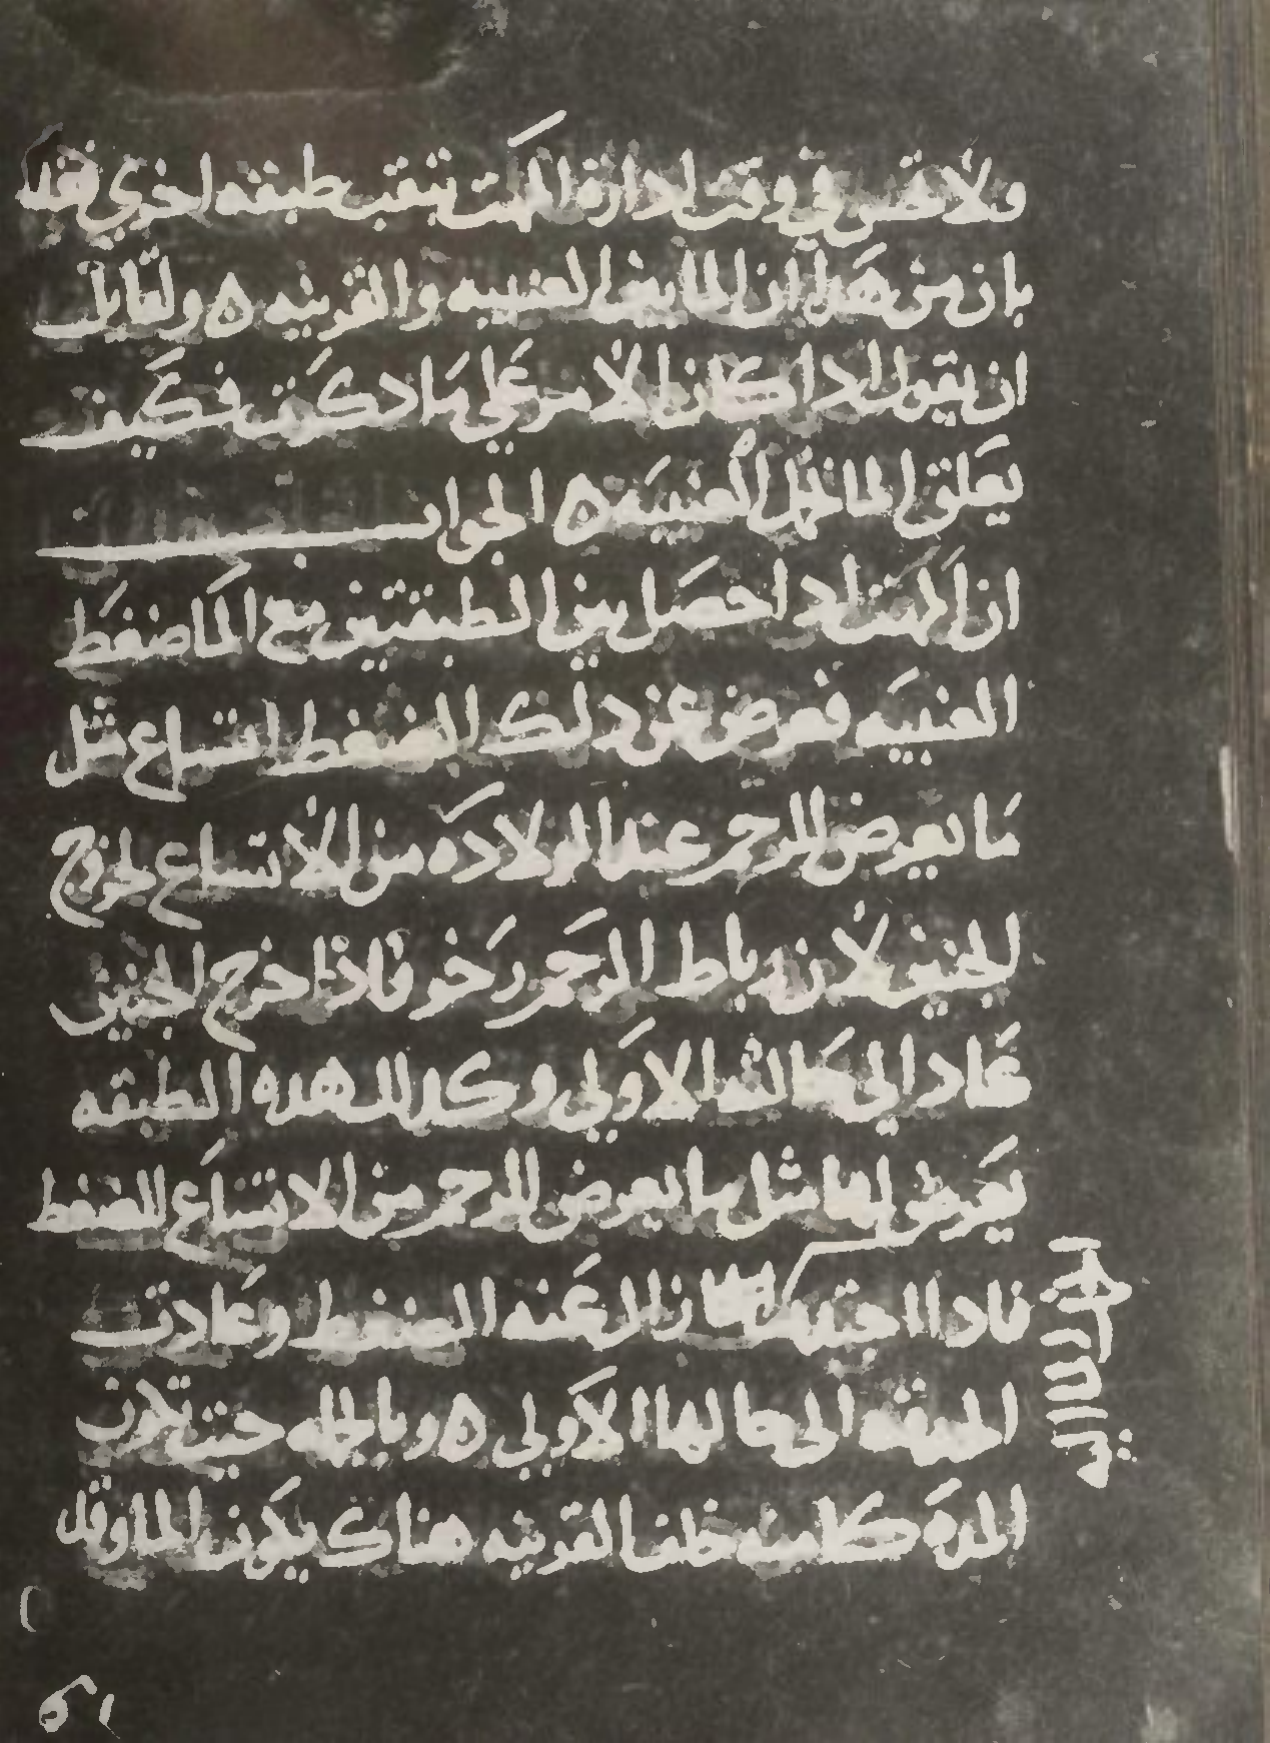 ولا تحس في وقت ادارة المهت بثقب طبقه اخري فقد
بان من هذا ان الما بين العنبيه والقرنيه ه ولقايل
ان يقول اذا كان الامر علي ما ذكرت فكيف
يعلق الما نحمل العنبيه ه الجواب
ان المهت اذا حصل بين الطبقتين مع الما ضغط
العنبيه فعرض عن ذلك الضغط اتساع مثل
ما يعرض للرحم عند الولاده من الاتساع لخروج
الجنين لان رباط الرحم رخو فاذا خرج الجنين
عاد الي حالته الاولي وكذلك هذه الطبقه
يعرض لها مثل ما يعرض للرحم من الاتساع للضغط
فاذا زال عنه الضغط وعادت
الي حالها الاولي ه وبالجمله حيث تكون
المدة كامنه خلف القرنيه هناك يكون الما وقد
٥١